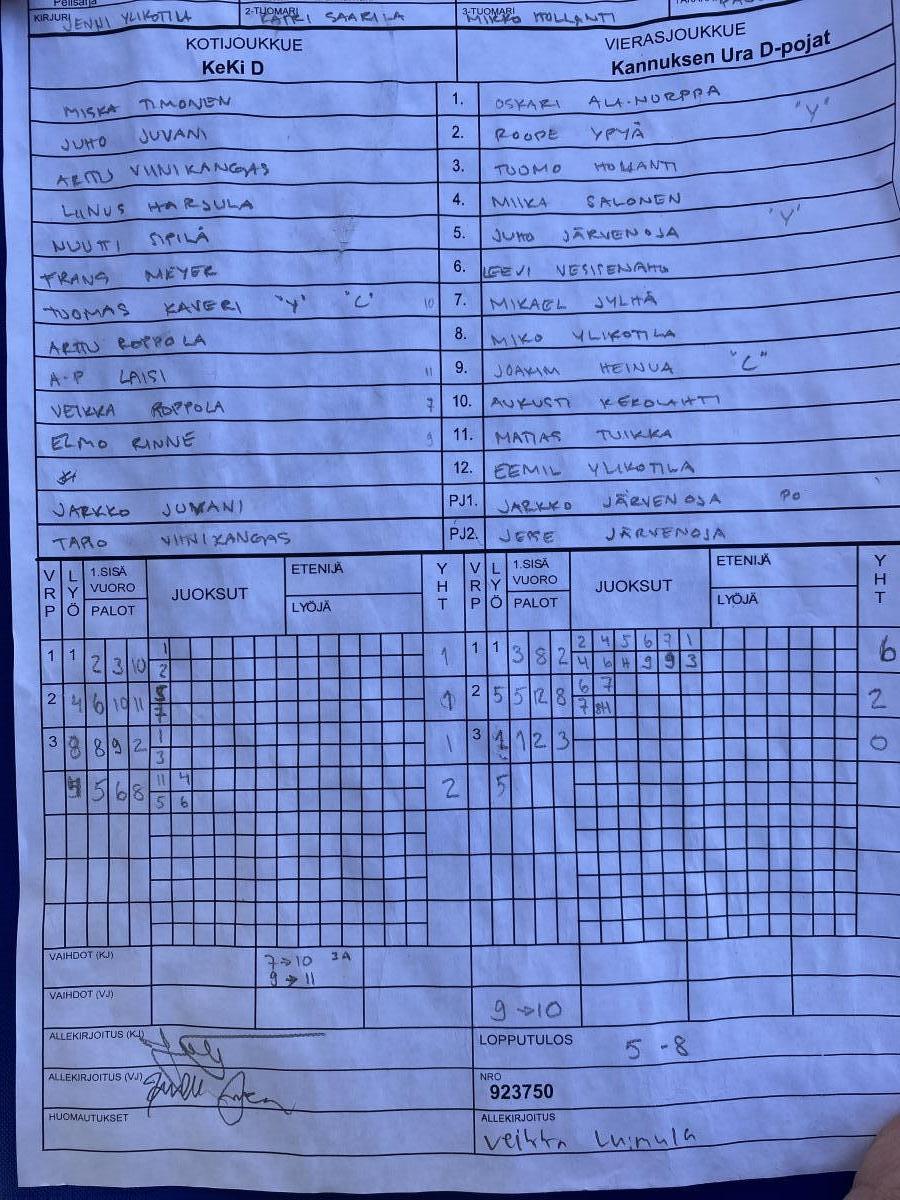 Pelisarja
KIRJURI JENNI YLIKOTILA 2-TUOMARI KATRI SAARELA 3-TUOMARI MIKKO HOLLANTI
KOTIJOUKKUE VIERASJOUKKUE
KeKi D Kannuksen Ura D-pojat
MISKA TIMONEN 1. OSKARI ALA-NURPPA
JUHO JUVANI 2. ROOPE YPYÄ "Y"
ARTTU VIINIKANGAS 3. TUOMO HOLLANTI
LINUS HARJULA 4. MIIKA SALONEN
NUUTTI SIPILÄ 5. JUHO JÄRVENOJA "Y"
FRANS MEYER 6. LEEVI VESISENAHO
TUOMAS KAVERI "Y" "C" 10 7. MIKAEL JYLHÄ
ARTTU ROPPOLA 8. MIKO YLIKOTILA
A-P LAISI 11 9. JOAKIM HEINUA "C"
VEIKKA ROPPOLA 7 10. AUKUSTI KEKOLAHTI
ELMO RINNE 9 11. MATIAS TUIKKA
12. EEMIL YLIKOTILA
JARKKO JUVANI PJ1. JARKKO JÄRVENOJA PO
TARO VIINIKANGAS PJ2. JERE JÄRVENOJA
VRP LYÖ 1.SISÄ VUORO PALOT JUOKSUT ETENIJÄ LYÖJÄ YHT VRP LYÖ 1.SISÄ VUORO PALOT JUOKSUT ETENIJÄ LYÖJÄ YHT
1 2 4 5 6 7 1
1 1 2 3 10 1 1 1 3 8 2 6
2 4 6 H 9 9 3
5 6 7
2 4 6 10 11 1 2 5 5 12 8 2
7 7 8H
1
3 8 8 9 2 1 3 1 1 2 3 0
3
11 4
5 6 8 2 5
5 6
VAIHDOT (KJ) 7→10 3A
9→11
VAIHDOT (VJ) 9→10
ALLEKIRJOITUS (KJ) LOPPUTULOS 5-8
ALLEKIRJOITUS (VJ) NRO
923750
HUOMAUTUKSET ALLEKIRJOITUS
Veikka Luinula